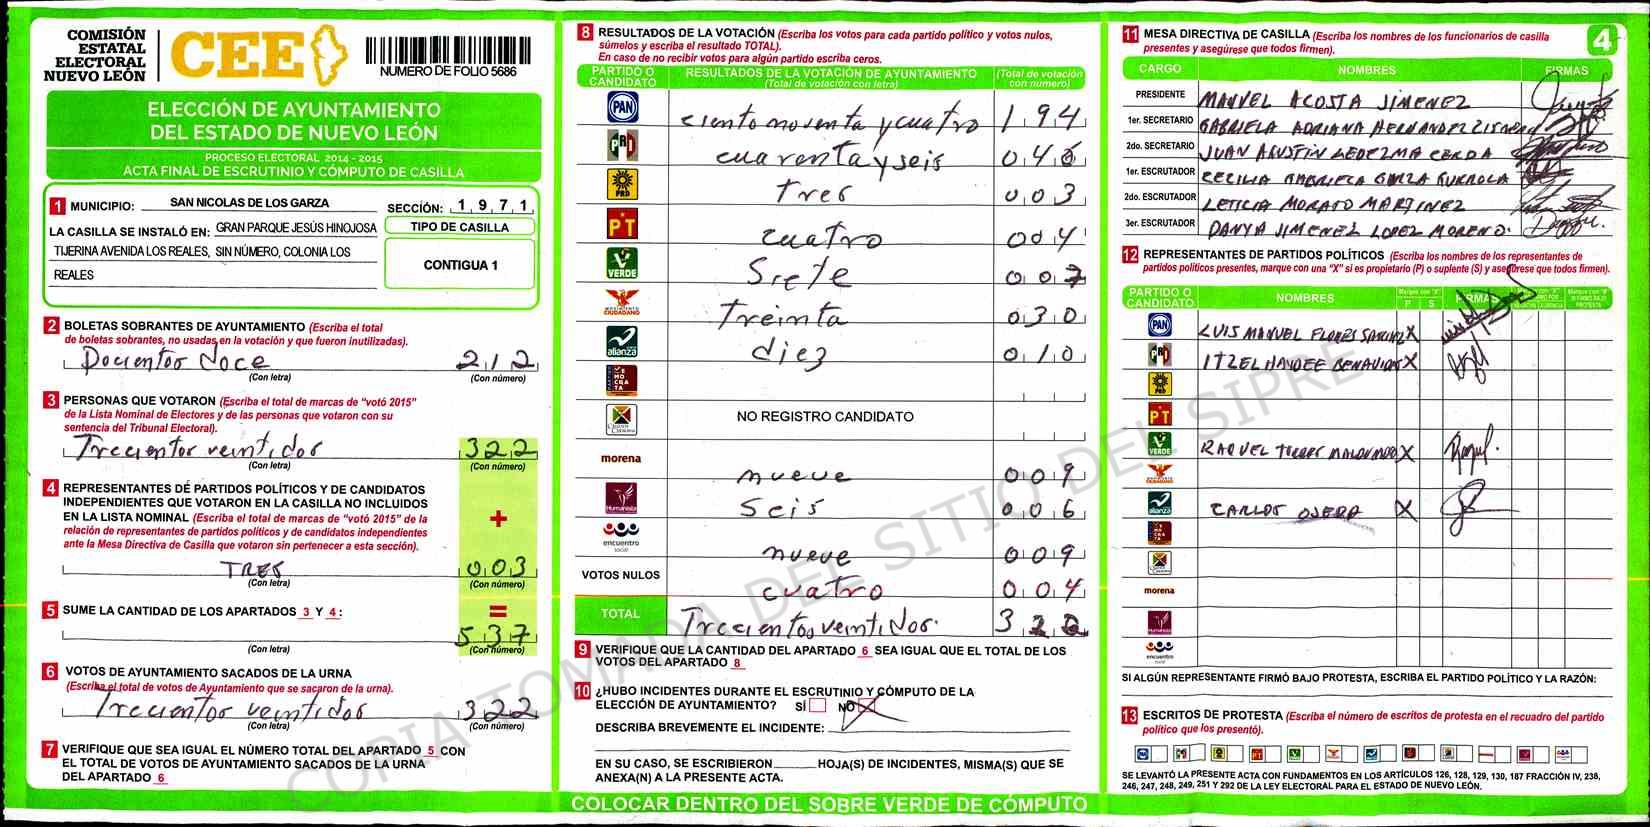 COMISIÓN
ESTATAL
ELECTORAL
NUEVO LEÓN
CEE
NUMERO DE FOLIO 5686
ELECCIÓN DE AYUNTAMIENTO
DEL ESTADO DE NUEVO LEÓN
PROCESO ELECTORAL 2014 - 2015
ACTA FINAL DE ESCRUTINIO Y CÓMPUTO DE CASILLA
1 MUNICIPIO: SAN NICOLAS DE LOS GARZA SECCIÓN: 1 9 7 1
LA CASILLA SE INSTALÓ EN: GRAN PARQUE JESÚS HINOJOSA
TIJERINA AVENIDA LOS REALES, SIN NÚMERO, COLONIA LOS
REALES
TIPO DE CASILLA
CONTIGUA 1
2 BOLETAS SOBRANTES DE AYUNTAMIENTO (Escriba el total
de boletas sobrantes, no usadas en la votación y que fueron inutilizadas).
Docientos doce 2 1 2
(Con letra) (Con número)
3 PERSONAS QUE VOTARON (Escriba el total de marcas de "votó 2015"
de la Lista Nominal de Electores y de las personas que votaron con su
sentencia del Tribunal Electoral).
Trecientos veintidos 3 2 2
(Con letra) (Con número)
4 REPRESENTANTES DE PARTIDOS POLÍTICOS Y DE CANDIDATOS
INDEPENDIENTES QUE VOTARON EN LA CASILLA NO INCLUIDOS
EN LA LISTA NOMINAL (Escriba el total de marcas de "votó 2015" de la
relación de representantes de partidos políticos y de candidatos independientes
ante la Mesa Directiva de Casilla que votaron sin pertenecer a esta sección).
+
TRES 0 0 3
(Con letra) (Con número)
5 SUME LA CANTIDAD DE LOS APARTADOS 3 Y 4: =
5 3 7
(Con letra) (Con número)
6 VOTOS DE AYUNTAMIENTO SACADOS DE LA URNA
(Escriba el total de votos de Ayuntamiento que se sacaron de la urna).
Trecientos veintidos 3 2 2
(Con letra) (Con número)
7 VERIFIQUE QUE SEA IGUAL EL NÚMERO TOTAL DEL APARTADO 5 CON
EL TOTAL DE VOTOS DE AYUNTAMIENTO SACADOS DE LA URNA
DEL APARTADO 6
8 RESULTADOS DE LA VOTACIÓN (Escriba los votos para cada partido político y votos nulos,
súmelos y escriba el resultado TOTAL).
En caso de no recibir votos para algún partido escriba ceros.
PARTIDO O CANDIDATO RESULTADOS DE LA VOTACIÓN DE AYUNTAMIENTO (Total de votación con letra) (Total de votación con número)
PAN ciento noventa y cuatro 1 9 4
PRD cuarenta y seis 0 4 6
PRD tres 0 0 3
PT cuatro 0 0 4
VERDE Siete 0 0 7
MOVIMIENTO CIUDADANO Treinta 0 3 0
alianza diez 0 1 0
NO REGISTRO CANDIDATO
morena nueve 0 0 9
Humanista Seis 0 0 6
encuentro social nueve 0 0 9
VOTOS NULOS cuatro 0 0 4
TOTAL Trecientos veintidos. 3 2 2
9 VERIFIQUE QUE LA CANTIDAD DEL APARTADO 6 SEA IGUAL QUE EL TOTAL DE LOS
VOTOS DEL APARTADO 8
10 ¿HUBO INCIDENTES DURANTE EL ESCRUTINIO Y CÓMPUTO DE LA
ELECCIÓN DE AYUNTAMIENTO? SÍ NO X
DESCRIBA BREVEMENTE EL INCIDENTE:
EN SU CASO, SE ESCRIBIERON HOJA(S) DE INCIDENTES, MISMA(S) QUE SE
ANEXA(N) A LA PRESENTE ACTA.
COLOCAR DENTRO DEL SOBRE VERDE DE CÓMPUTO
11 MESA DIRECTIVA DE CASILLA (Escriba los nombres de los funcionarios de casilla
presentes y asegúrese que todos firmen).
4
CARGO NOMBRES FIRMAS
PRESIDENTE MANUEL ACOSTA JIMENEZ
1er. SECRETARIO GABRIELA ADRIANA HERNANDEZ
2do. SECRETARIO JUAN AGUSTIN LEDEZMA CERDA
1er. ESCRUTADOR CECILIA GABRIELA GARZA GURROLA
2do. ESCRUTADOR LETICIA MORATO MARTINEZ
3er. ESCRUTADOR DANYA JIMENEZ LOPEZ MORENO.
12 REPRESENTANTES DE PARTIDOS POLÍTICOS (Escriba los nombres de los representantes de
partidos políticos presentes, marque con una "X" si es propietario (P) o suplente (S) y asegúrese que todos firmen).
PARTIDO O CANDIDATO NOMBRES P S FIRMAS
PAN LUIS MANUEL FLORES X
ITZEL HAYDEE BENAVIDES X
PRD
PT
VERDE RAQUEL TORRES MALDONADO X
alianza CARLOS OJEDA X
morena
Humanista
encuentro social
SI ALGÚN REPRESENTANTE FIRMÓ BAJO PROTESTA, ESCRIBA EL PARTIDO POLÍTICO Y LA RAZÓN:
13 ESCRITOS DE PROTESTA (Escriba el número de escritos de protesta en el recuadro del partido
político que los presentó).
SE LEVANTÓ LA PRESENTE ACTA CON FUNDAMENTOS EN LOS ARTÍCULOS 126, 128, 129, 130, 187 FRACCIÓN IV, 238,
246, 247, 248, 249, 251 Y 292 DE LA LEY ELECTORAL PARA EL ESTADO DE NUEVO LEÓN.
COPIA TOMADA DEL SITIO DEL SIPRE